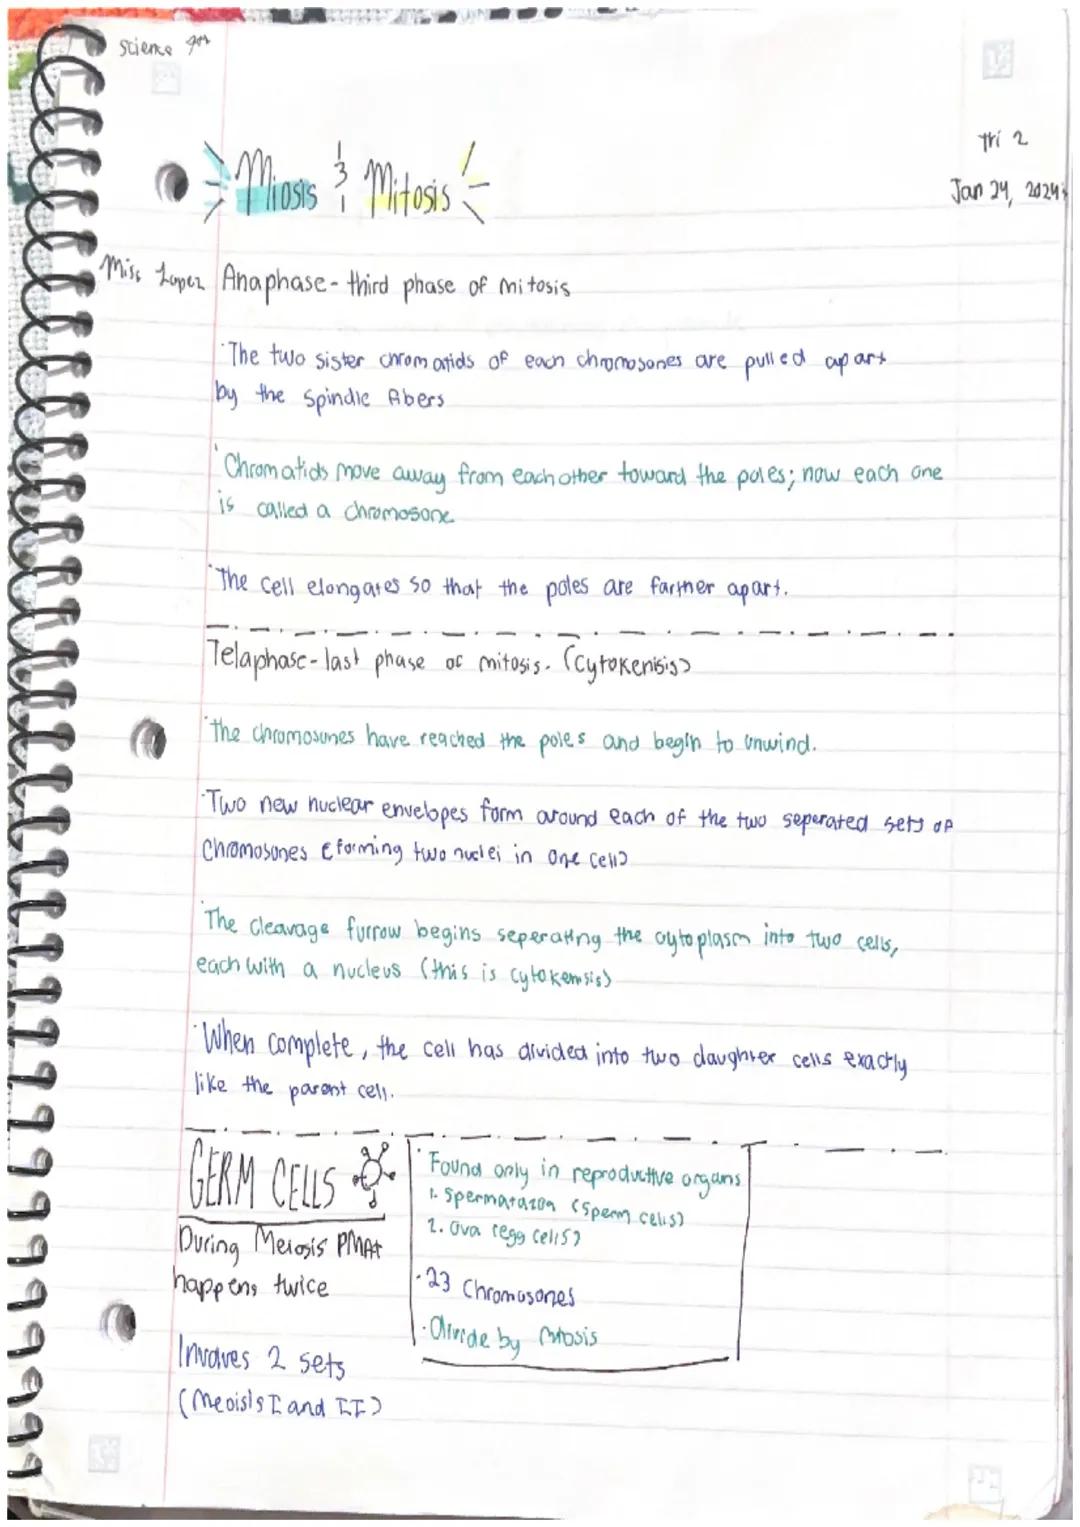 Science 9th
Tri 2
Jan 24, 2024
Miosis & Mitosis
Miss Lopez
Anaphase- third phase of mitosis
·The two sister chromatids of each chromosones are pulled apart
by the spindle fibers
·Chromatids move away from each other toward the poles; now each one
is called a chromosone
·The cell elongates so that the poles are farther apart.
Telaphase- last phase of mitosis. (cytokenisis)
·the chromosones have reached the poles and begin to unwind.
·Two new nuclear envelopes form around each of the two seperated sets of
Chromosones (forming two nuclei in one cell)
·The cleavage furrow begins seperating the cytoplasm into two cells,
each with a nucleus (this is cytokensis)
·When complete, the cell has divided into two daughter cells exactly
like the parent cell.
GERM CELLS
During Meiosis PMAT
happens twice
Involves 2 sets
(Meoisis I and II)
·Found only in reproductive organs
1. Spermatazoa (sperm cells)
2. Ova (egg cells)
·23 Chromosones
·divide by mitosis